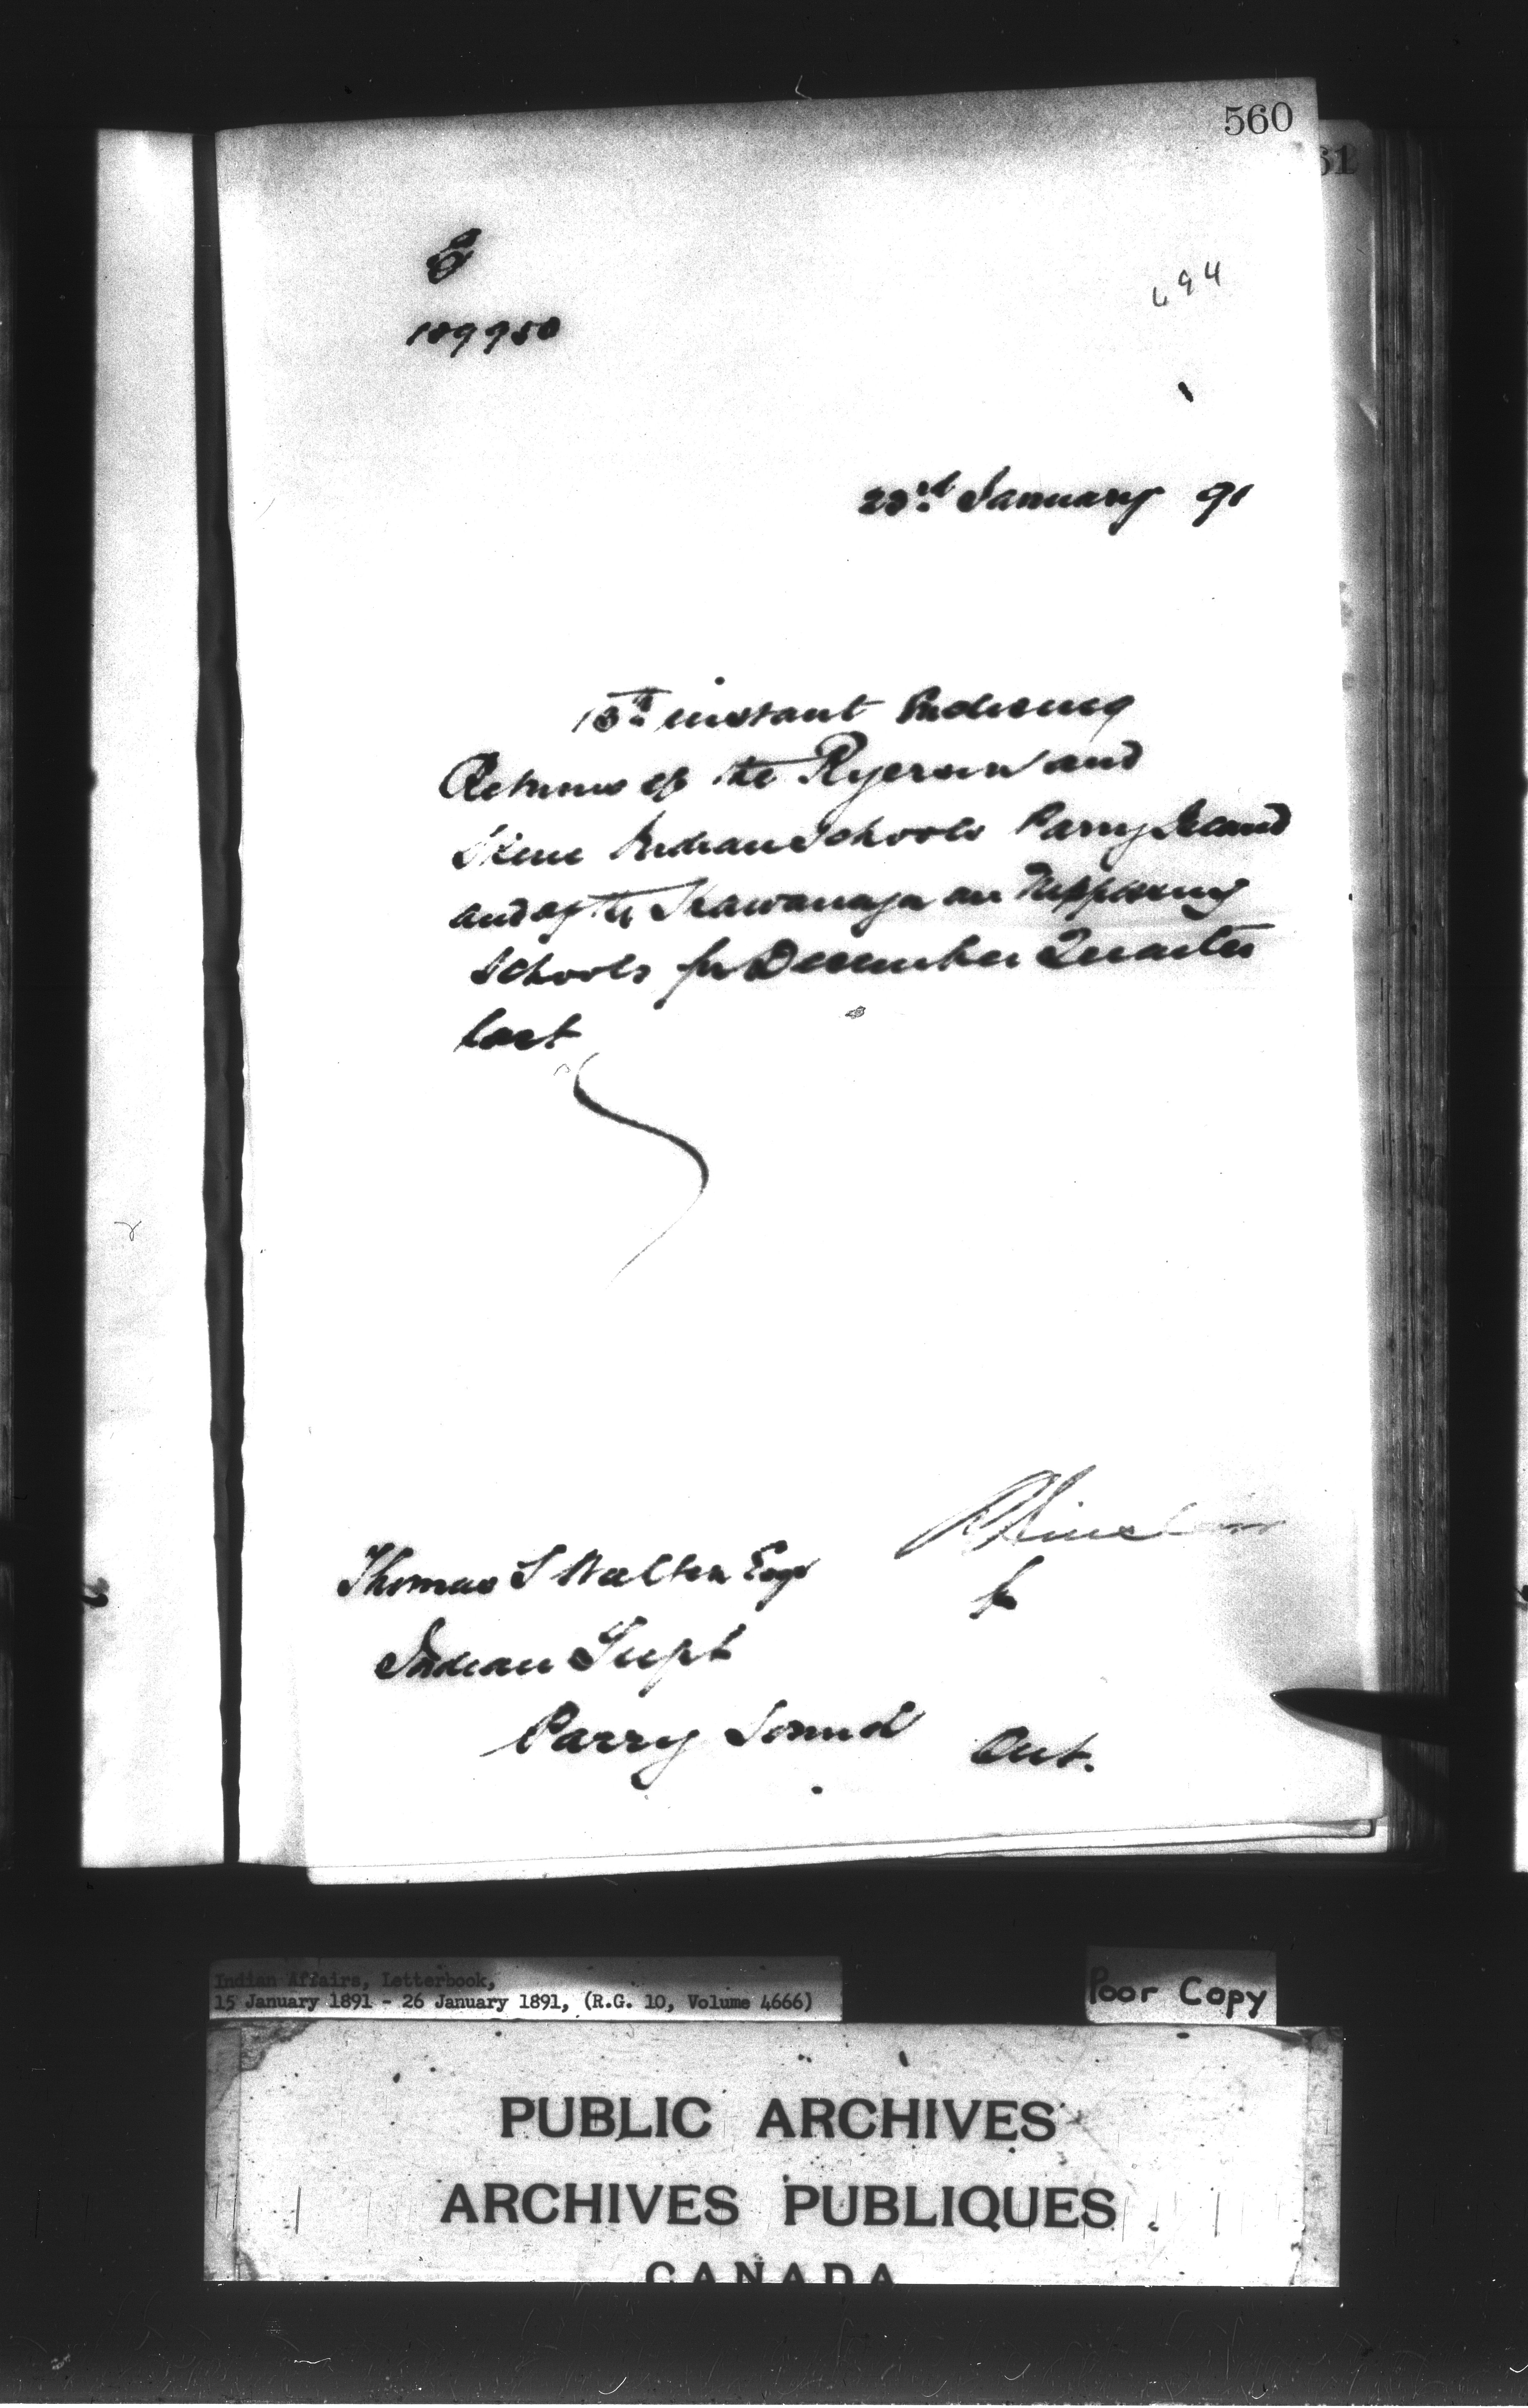 560
61
694
189950
23rd January 91
15th instant Enclosing
Returns of the Ryerson and
Skene Indian Schools Parry Island
and of the Shawanaga an Nippissing
Schools for December Quarter
last
Thomas S Walton Esqr
for
Indian Supt
Parry Sound Ont.
Indian Affairs, Letterbook,
15 January 1891 - 26 January 1891, (R.G. 10, Volume 4666)
Poor Copy
PUBLIC ARCHIVES
ARCHIVES PUBLIQUES
CANADA